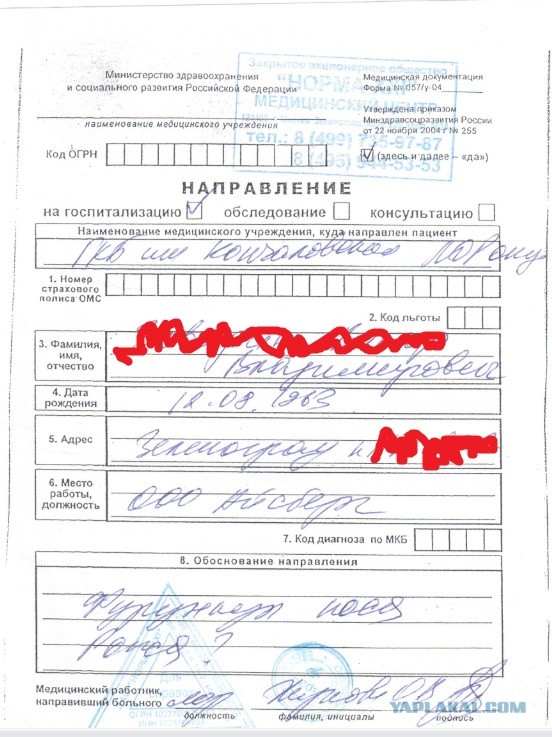 Закрытое акционерное общество
Министерство здравоохранения
и социального развития Российской Федерации
Медицинская документация
Форма № 057/у-04
МЕДИЦИНСКИЙ ЦЕНТР
Утверждена приказом
Минздравсоцразвития России
от 22 ноября 2004 г № 255
наименование медицинского учреждения
Код ОГРН
(здесь и далее – «да»)
НАПРАВЛЕНИЕ
на госпитализацию обследование консультацию
Наименование медицинского учреждения, куда направлен пациент
ГКБ им Кончаловского
1. Номер
страхового
полиса ОМС
2. Код льготы
3. Фамилия,
имя,
отчество
Владимировна
4. Дата
рождения
12.08.1963
5. Адрес
Зеленоград
6. Место
работы,
должность
ООО Айсберг
7. Код диагноза по МКБ
8. Обоснование направления
Фурункул носа
Медицинский работник,
направивший больного
должность фамилия, инициалы подпись
YAPLAKAL.COM